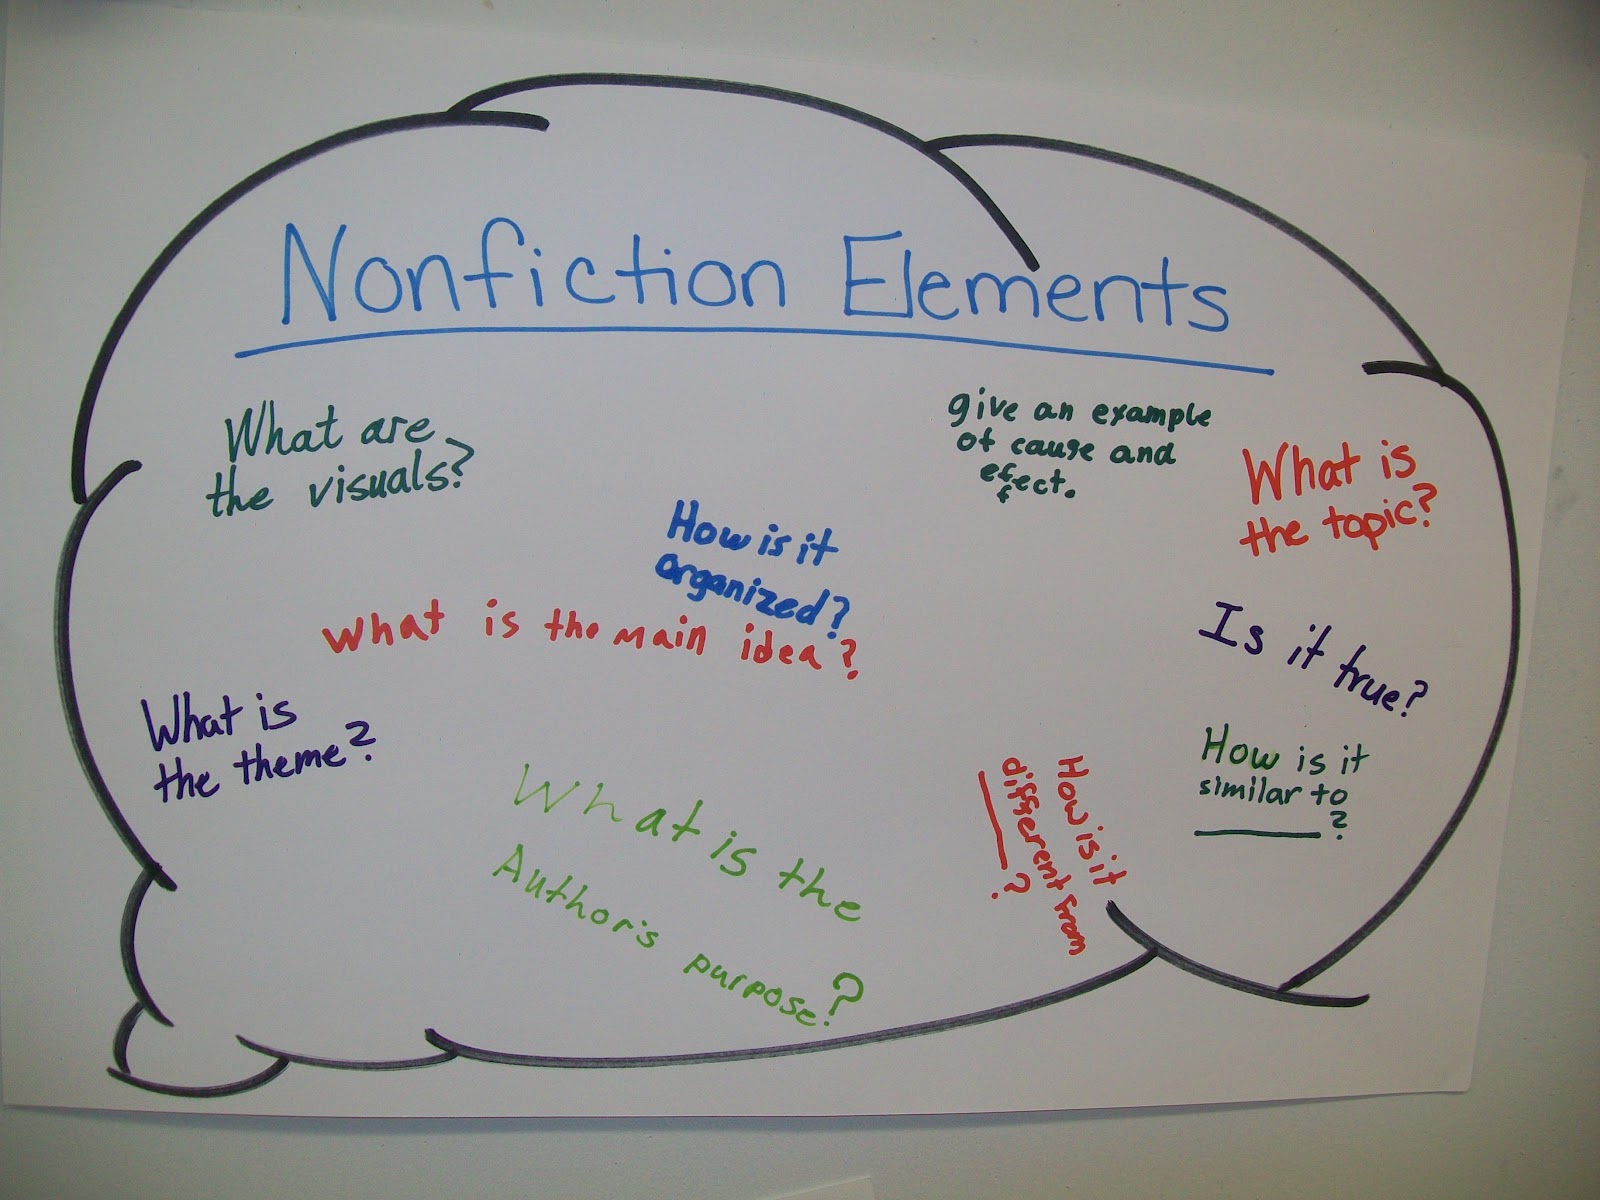 Nonfiction Elements
What are
the visuals?
give an example
of cause and
effect.
What is
the topic?
How is it
organized?
What is the main idea?
Is it true?
What is
the theme?
How is it
similar to
________?
What is the
Author's purpose?
How is it
different from
________?